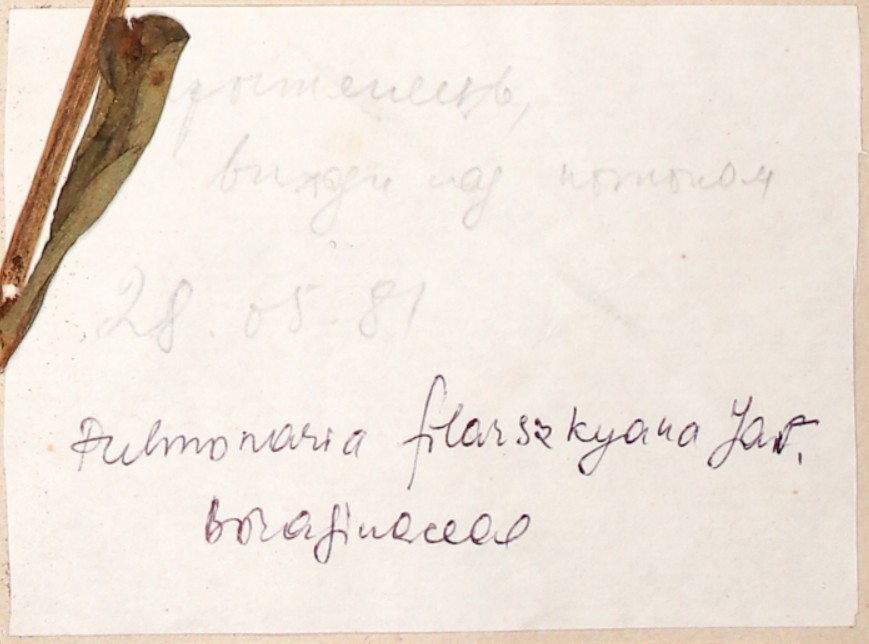 над потоком
28.05.81
Pulmonaria filarszkyana Jav.
Boraginaceae